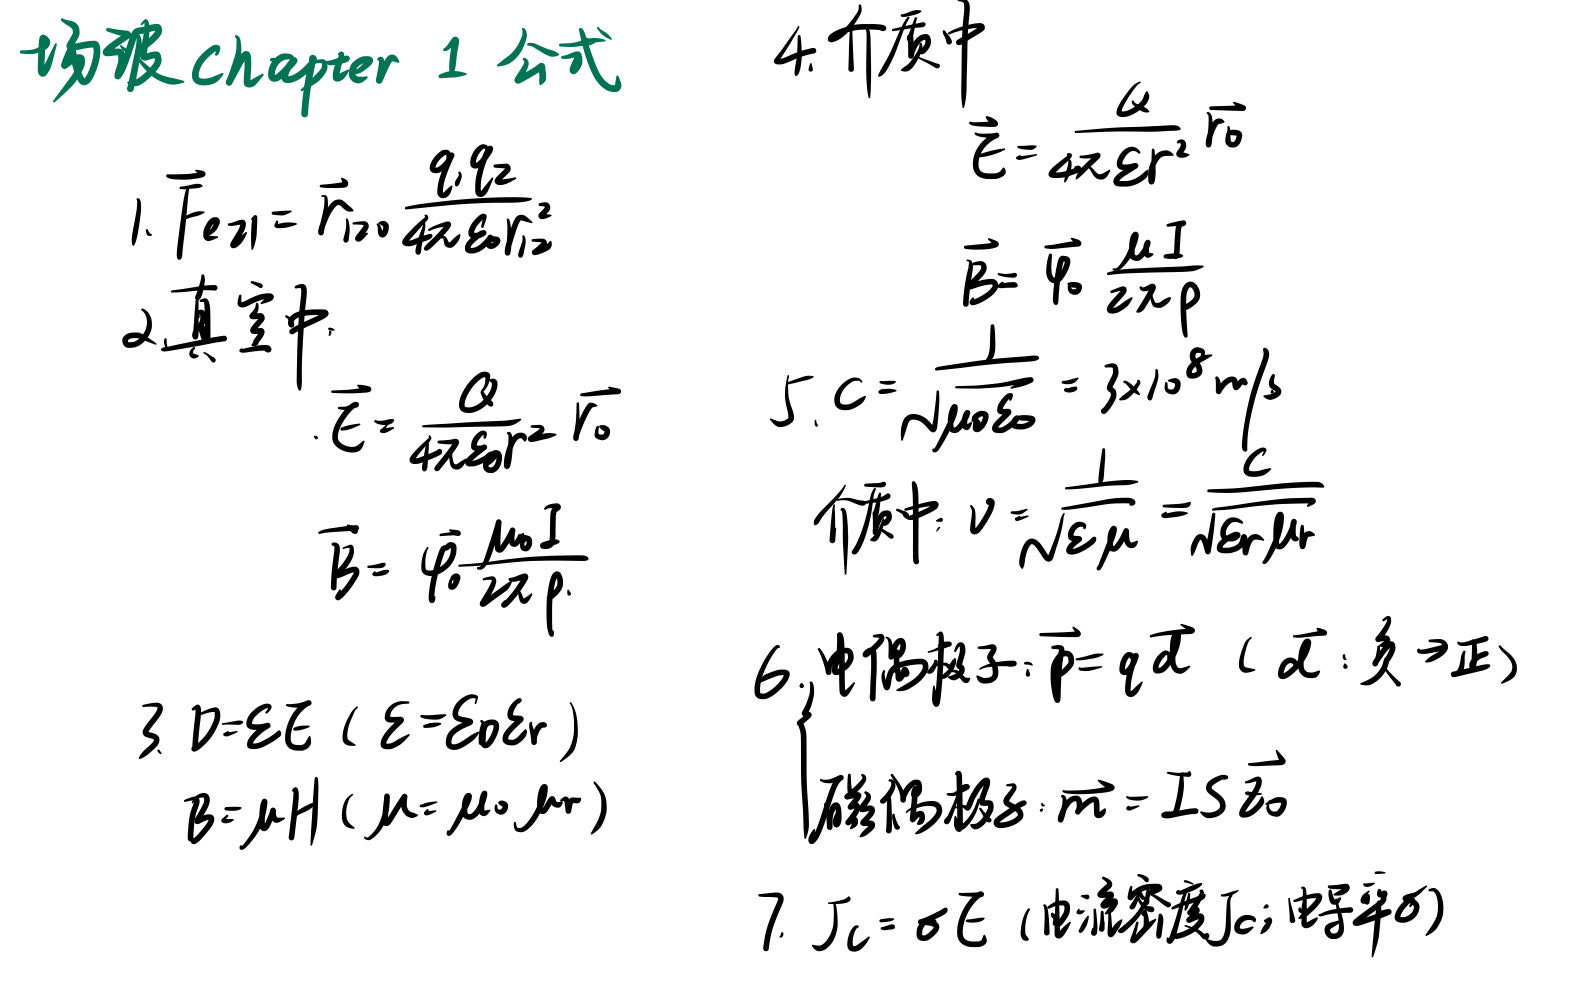 场波Chapter 1 公式
1. $\vec{F}_{e21} = \vec{r}_{120} \frac{q_1 q_2}{4\pi\varepsilon_0 r_{12}^2}$
2. 真空中:
$\vec{E} = \frac{Q}{4\pi\varepsilon_0 r^2} \vec{r_0}$
$\vec{B} = \vec{\varphi}_0 \frac{\mu_0 I}{2\pi\rho}$
3. D=εE ( ε=ε₀εr )
B=μH ( μ=μ₀μr )
4. 介质中
$\vec{E} = \frac{Q}{4\pi\varepsilon r^2} \vec{r_0}$
$\vec{B} = \vec{\varphi}_0 \frac{\mu I}{2\pi\rho}$
5. $C = \frac{1}{\sqrt{\mu_0\varepsilon_0}} = 3×10^8 m/s$
介质中: $v = \frac{1}{\sqrt{\varepsilon\mu}} = \frac{C}{\sqrt{\varepsilon_r\mu_r}}$
6. 电偶极子: $\vec{p} = q\vec{d}$ ( $\vec{d}$ : 负→正 )
磁偶极子: $\vec{m} = IS\vec{z_0}$
7. $J_c = σE$ (电流密度$J_c$; 电导率σ)